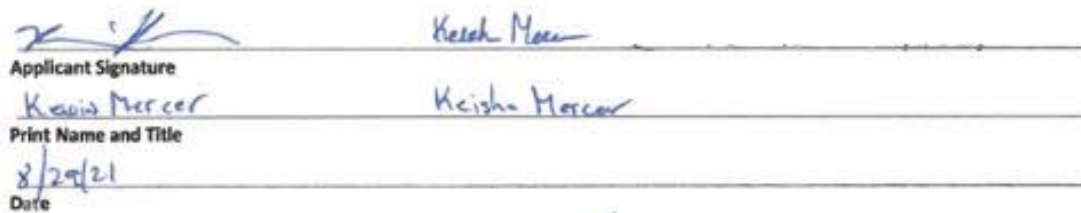 Applicant Signature
Kevin Mercer Keisha Mercer
Print Name and Title
8/29/21
Date